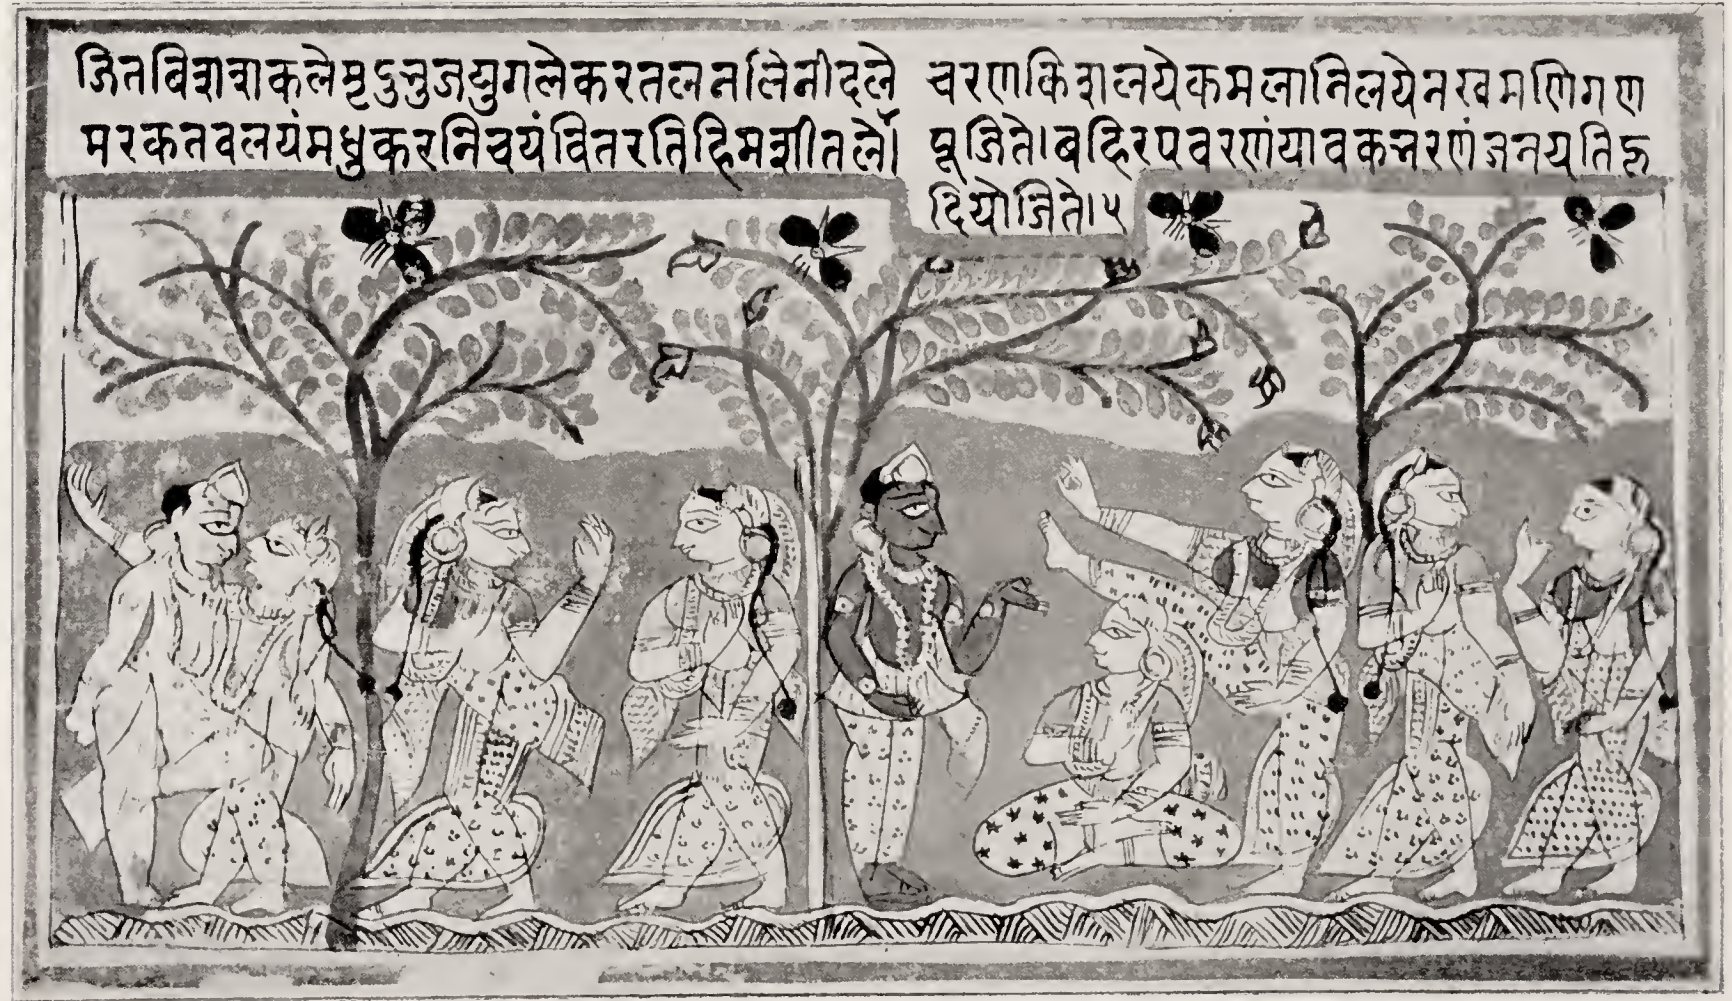 जितबिशशकलेमृदुभुजयुगलेकरतलनलिनीदले
मरकतवलयंमधुकरनिचयंवितरतिहिमशीतले।
चरणकिशलयेकमलानिलयेनखमणिगण
पूजिते।बहिरपवरणंयावकभरणंजनयतिहृ
दियोजिते।५